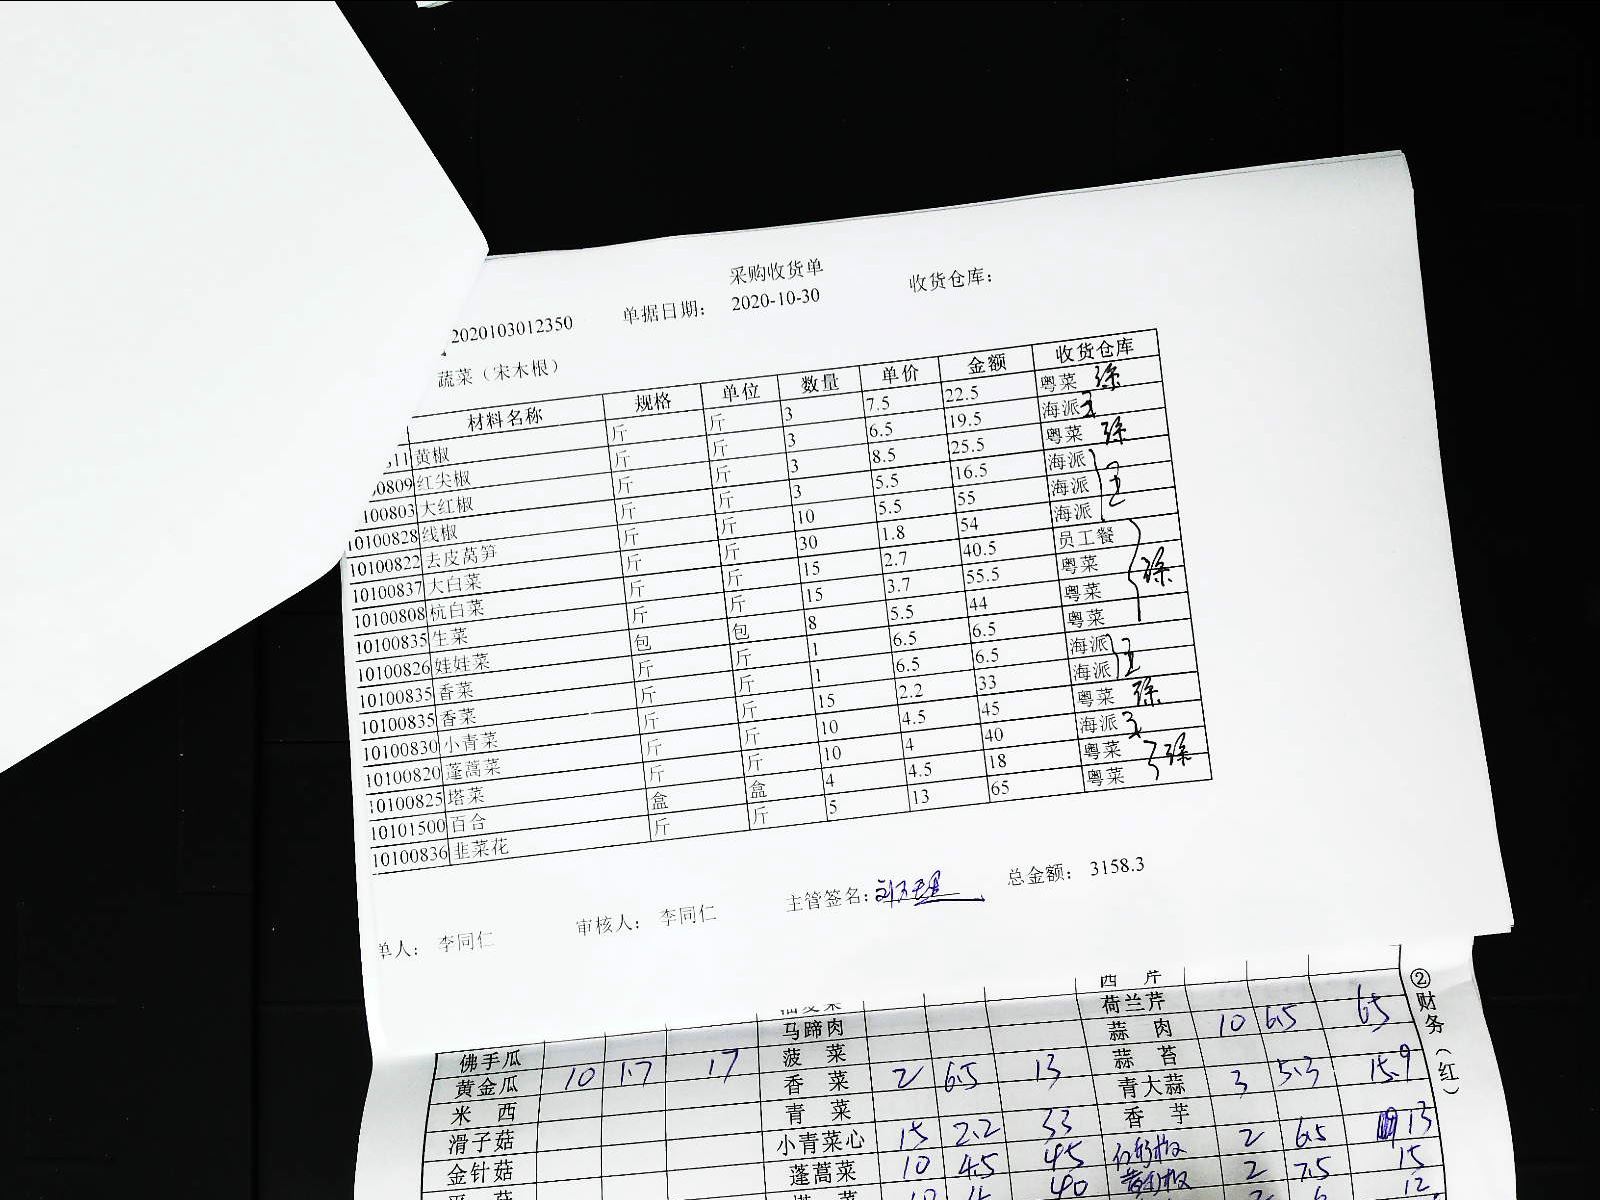 采购收货单
2020103012350 单据日期： 2020-10-30 收货仓库：
蔬菜（宋木根）
材料名称 规格 单位 数量 单价 金额 收货仓库
11 黄椒 斤 斤 3 7.5 22.5 粤菜 徐
0809 红尖椒 斤 斤 3 6.5 19.5 海派 王
100803 大红椒 斤 斤 3 8.5 25.5 粤菜 徐
10100828 线椒 斤 斤 3 5.5 16.5 海派
10100822 去皮莴笋 斤 斤 10 5.5 55 海派 王
10100837 大白菜 斤 斤 30 1.8 54 海派
10100808 杭白菜 斤 斤 15 2.7 40.5 员工餐
10100835 生菜 斤 斤 15 3.7 55.5 粤菜 徐
10100826 娃娃菜 包 包 8 5.5 44 粤菜
10100835 香菜 斤 斤 1 6.5 6.5 粤菜
10100835 香菜 斤 斤 1 6.5 6.5 海派 王
10100830 小青菜 斤 斤 15 2.2 33 海派
10100820 蓬蒿菜 斤 斤 10 4.5 45 粤菜 徐
10100825 塔菜 斤 斤 10 4 40 海派 王
10101500 百合 盒 盒 4 4.5 18 粤菜 徐
10100836 韭菜花 斤 斤 5 13 65 粤菜
单人： 李同仁 审核人： 李同仁 主管签名： 总金额： 3158.3
西芹
荷兰芹
马蹄肉 蒜肉 10 6.5 65
佛手瓜 菠菜 蒜苔
黄金瓜 10 1.7 17 香菜 2 6.5 13 青大蒜 3 5.3 15.9
米西 青菜 香芋
滑子菇 小青菜心 15 2.2 33 2 6.5 13
金针菇 10 4.5 45 蓬蒿菜 2 7.5 15
40 12
②财务（红）